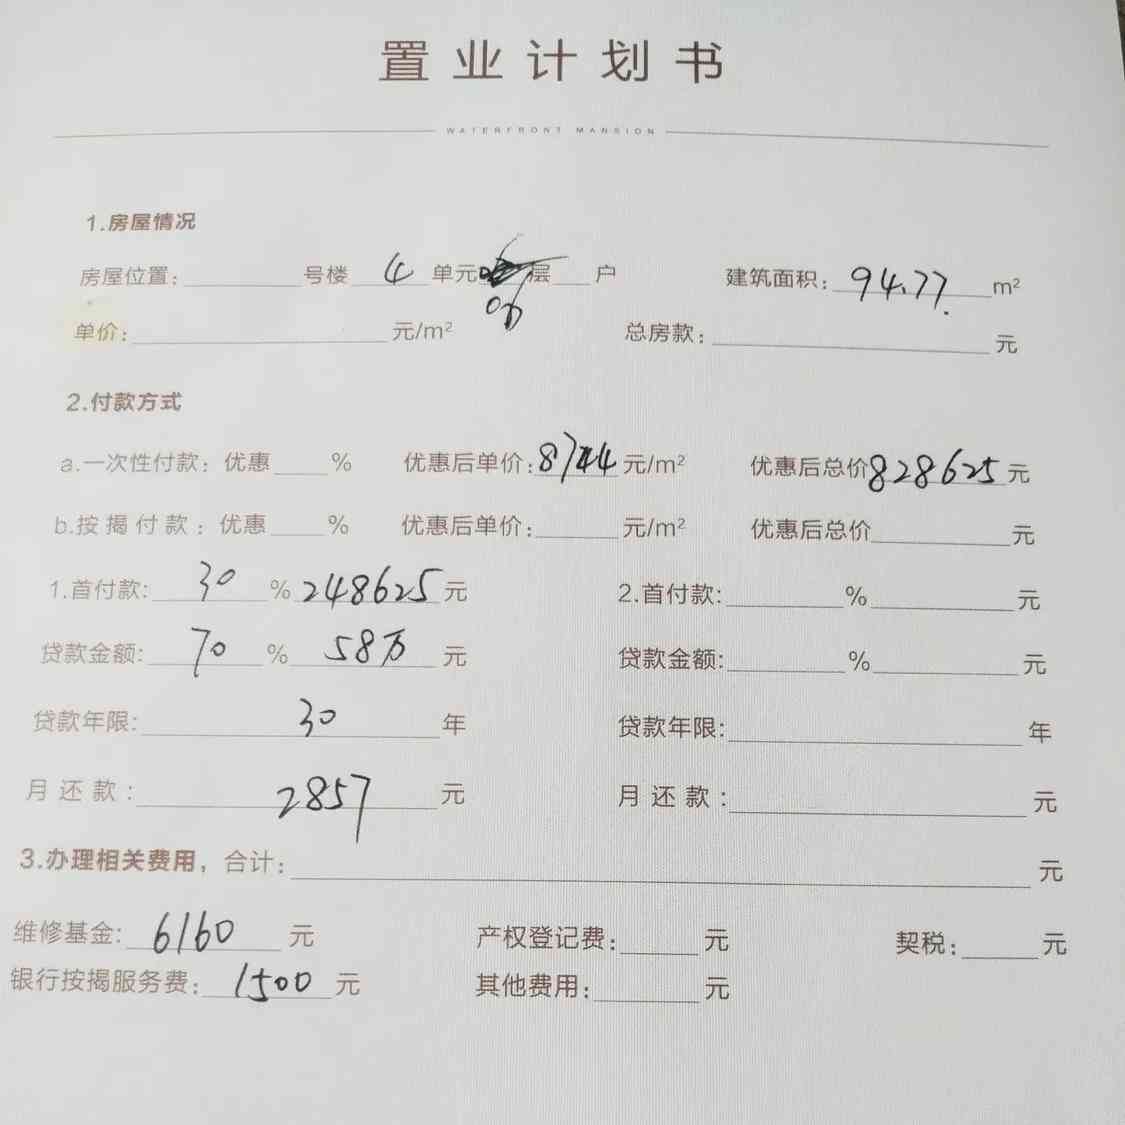 置业计划书
WATERFRONT MANSION
1.房屋情况
房屋位置:______号楼 4 单元 层__户 建筑面积: 94.77. m²
06
单价:______元/m² 总房款:______元
2.付款方式
a.一次性付款: 优惠__% 优惠后单价: 8744 元/m² 优惠后总价 828625 元
b.按揭付款: 优惠__% 优惠后单价:____元/m² 优惠后总价______元
1.首付款: 30 % 248625 元 2.首付款:____%____元
贷款金额: 70 % 58万 元 贷款金额:____%____元
贷款年限: 30 年 贷款年限:______年
月还款: 2857 元 月还款:______元
3.办理相关费用, 合计:______元
维修基金: 6160 元 产权登记费:____元 契税:____元
银行按揭服务费: 1500 元 其他费用:____元